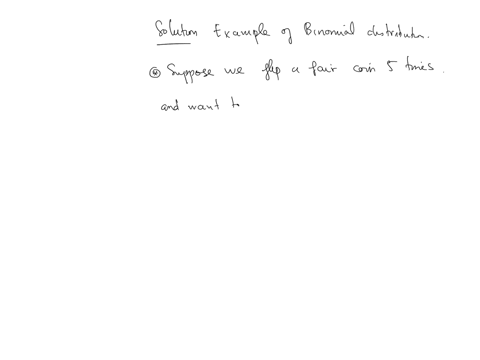 Solution Example of Binomial distribution.
Suppose we flip a fair coin 5 times.
and want t